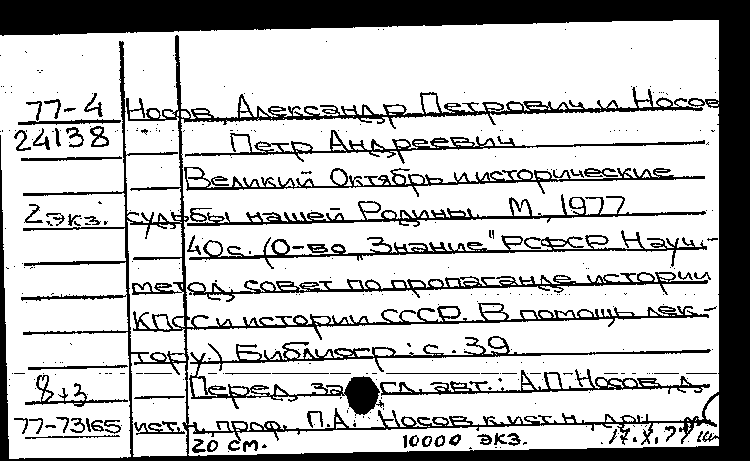 77-4 Носов, Александр Петрович и Носов
24138 Петр Андреевич
Великий Октябрь и исторические
2 экз. судьбы нашей Родины. М., 1977
40 с. (О-во „Знание" РСФСР. Науч.-
метод. совет по пропаганде истории
КПСС и истории СССР. В помощь лек-
тору.) Библиогр.: с. 39.
8+3 Перед загл. авт.: А.П. Носов, д.
77-73165 ист. н., проф., П.А. Носов, к. ист. н., доц.
20 см. 10000 экз. 17.X.77